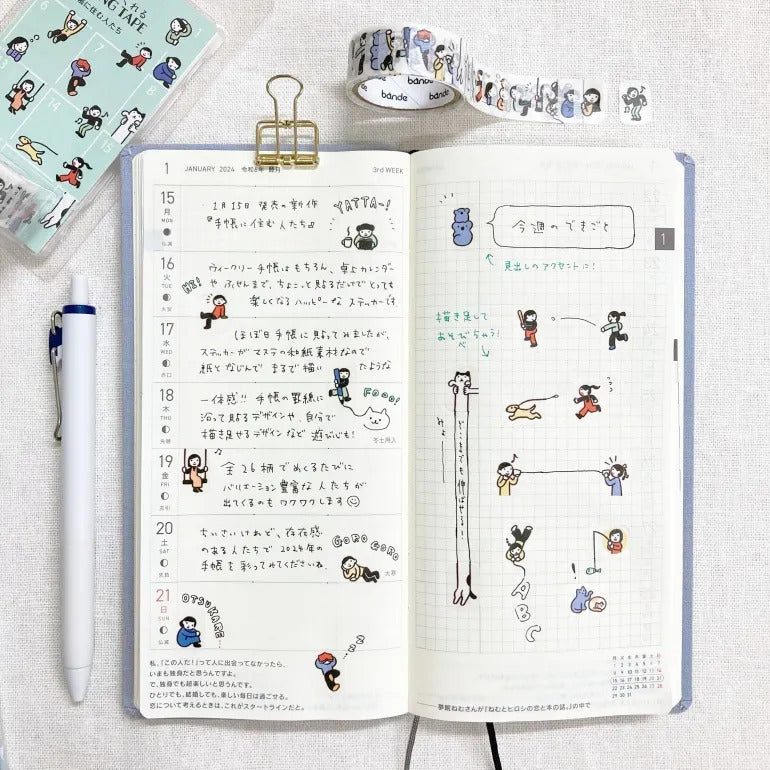 くれる
NG TAPE
帳に住む人たち
6
7
8
14
15
bande
bande
bande
1 JANUARY 2024 令和6年 睦月 3rd WEEK
15
月
MON
仏滅
1月15日 発売の新作
『手帳に住む人たち』
YATTA~!
16
火
TUE
大安
ウィークリー手帳はもちろん、卓上カレンダー
や ふせんまで、ちょこっと貼るだけでとっても
楽しくなるハッピーな ステッカーです
HEY!
17
水
WED
赤口
ほぼ日手帳に貼ってみましたが、
ステッカーがマステの和紙素材なので
紙となじんで まるで描い たような
18
木
THU
先勝
一体感!! 手帳の罫線に
沿って貼るデザインや、自分で
描き足せるデザインなど 遊び心も!
FOOO!
冬土用入
19
金
FRI
友引
全26柄でめくるたびに
バリエーション豊富な人たちが
出てくるのもワクワクします
20
土
SAT
先負
ちいさいけれど、存在感
のある人たちで 2024年の
手帳を彩ってみてくださいね
GORO GORO
大寒
21
日
SUN
仏滅
OTSUKARE...
ZZZ
私、「この人だ!」って人に出会ってなかったら、
いまも独身だと思うんですよ。
で、独身でも超楽しいと思うんです。
ひとりでも、結婚しても、楽しい毎日は過ごせる。
恋について考えるときは、これがスタートラインだと。
今週のできごと
1
見出しのアクセントに!
描き足して
あそびちゃう!
みょーーん
どこまでも伸ばせる!
ABC
!
月 火 水 木 金 土 日
1 2 3 4 5 6 7
8 9 10 11 12 13 14
15 16 17 18 19 20 21
22 23 24 25 26 27 28
29 30 31
夢眠ねむさんが『ねむとヒロシの恋と本の話。』の中で